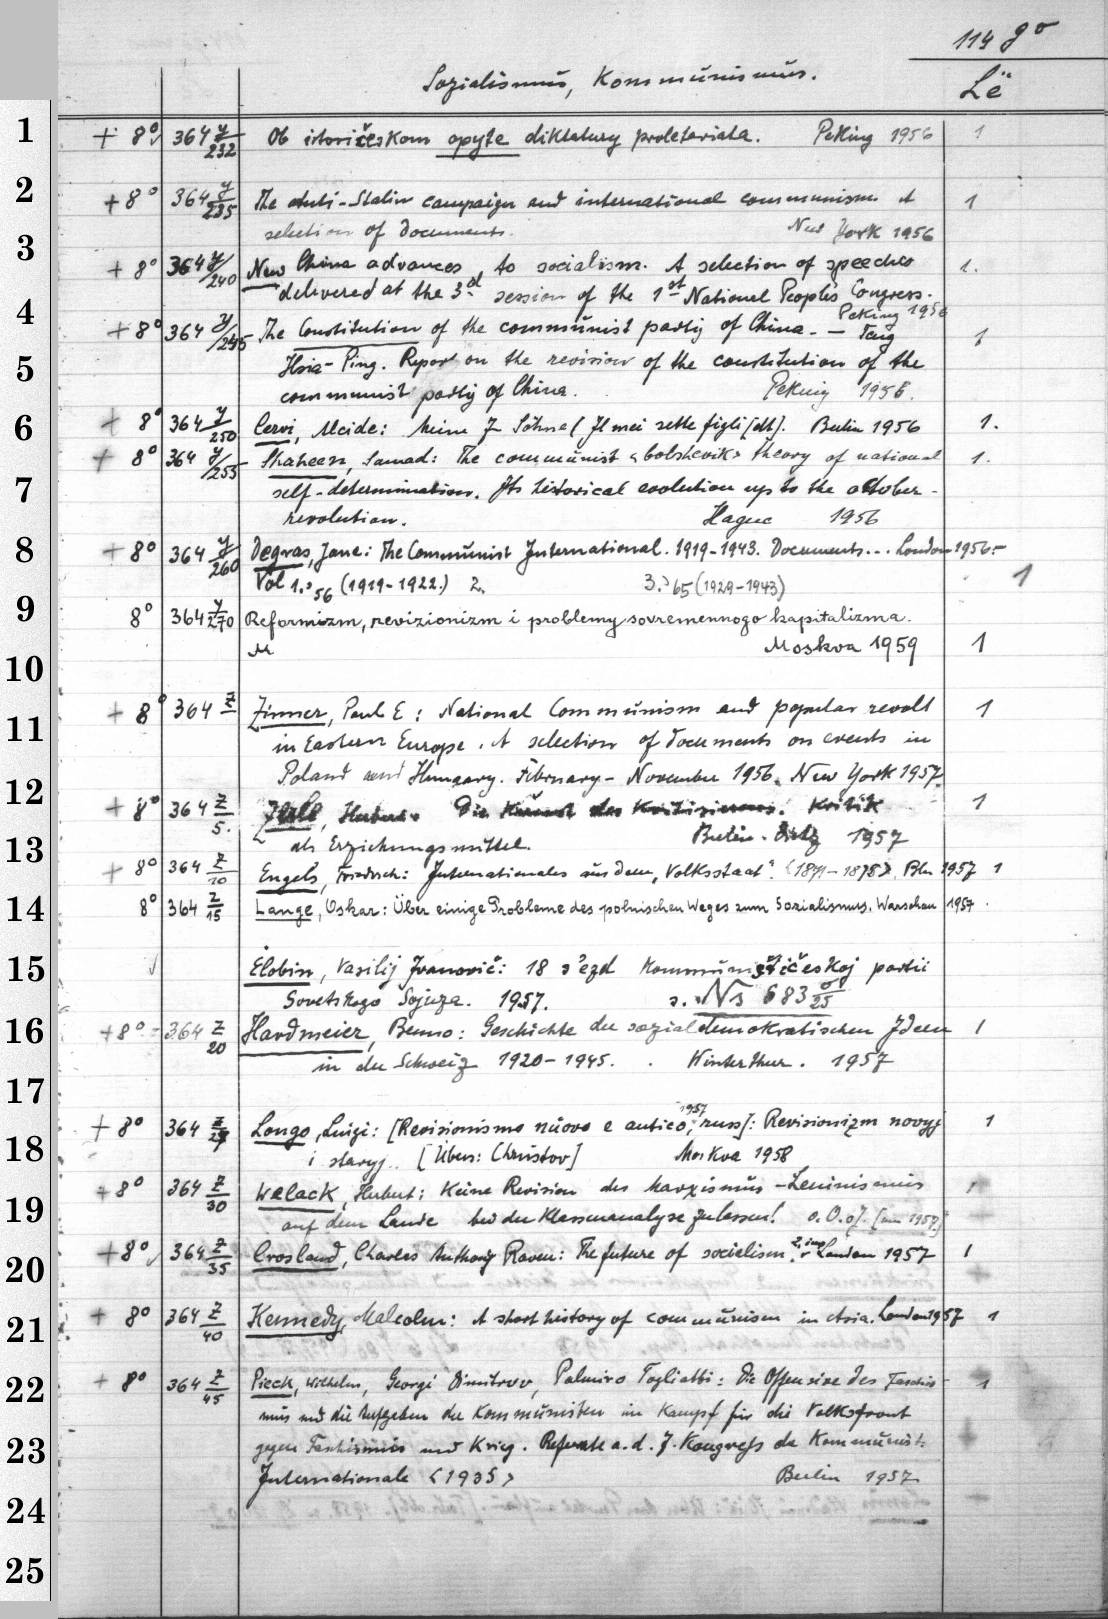 114 go
Sozialismus, Kommunismus. Lë
1 + 8° 364 y/232 Ob istoričeskom opyte diktatury proletariata. Peking 1956 1
2 + 8° 364 y/235 The Anti-Stalin campaign and international communism. A 1
selection of documents. New York 1956
3 + 8° 364 y/240 New China advances to socialism. A selection of speeches 1.
delivered at the 3d. session of the 1st National People's Congress.
Peking 1956
4 + 8° 364 y/245 The Constitution of the communist party of China. – Teng 1
5 Hsia-Ping. Report on the revision of the constitution of the
communist party of China. Peking 1956.
6 + 8° 364 y/250 Cervi, Alcide: Meine 7 Söhne (I miei sette figli [dt]. Berlin 1956 1.
+ 8° 364 y/255 Shaheen, Samad: The communist <bolshevik> theory of national 1.
7 self-determination. Its historical evolution up to the october-
revolution. Hague 1956
8 + 8° 364 y/260 Degras, Jane: The Communist International. 1919-1943. Documents... London 1956.-
Vol 1.: 56 (1919-1922.) 2. 3.: 65 (1929-1943) 1
9 8° 364 y/270 Reformizm, revizionizm i problemy sovremennogo kapitalizma.
M Moskva 1959 1
10
11 + 8° 364 z Zinner, Paul E: National Communism and popular revolt 1
in Eastern Europe. A selection of documents on events in
Poland and Hungary. February – November 1956. New York 1957.
12 + 8° 364 z/5. Kritik 1
als Erziehungsmittel. Berlin. Dietz 1957
13 + 8° 364 z/10 Engels, Friedrich: Internationales aus dem „Volksstaat" <1871-1875>. Bln 1957 1
14 8° 364 z/15 Lange, Oskar: Über einige Probleme des polnischen Weges zum Sozialismus. Warschau 1957.
15 Elobin, Vasilij Ivanovič: 18 s'ezd Kommunističeskoj partii
Sovetskogo Sojuza. 1957. s. Ns 683 σ/25
16 + 8° 364 z/20 Hardmeier, Benno: Geschichte der sozialdemokratischen Ideen 1
in der Schweiz 1920-1945. Winterthur. 1957
17
+ 8° 364 z/25 Longo, Luigi: [Revisionismo nuovo e antico, 1957 russ]: Revisionizm novyj 1
18 i staryj. [Übers: Christov] Moskva 1958
19 + 8° 364 z/30 Welack, Hubert: Keine Revision des Marxismus-Leninismus 1
auf dem Lande bei der Klassenanalyse zulassen! o. O. o J. [um 1957.]
20 + 8° 364 z/35 Crosland, Charles Anthony Raven: The future of socialism. 2. imp London 1957 1
21 + 8° 364 z/40 Kennedy, Malcolm: A short history of communism in Asia. London 1957 1
22 + 8° 364 z/45 Pieck, Wilhelm, Georgi Dimitrov, Palmiro Togliatti: Die Offensive des Faschis- 1
mus und die Aufgaben der Kommunisten im Kampf für die Volksfront
23 gegen Faschismus und Krieg. Referate a. d. 7. Kongreß de Kommunist.
Internationale <1935> Berlin 1957
24
25